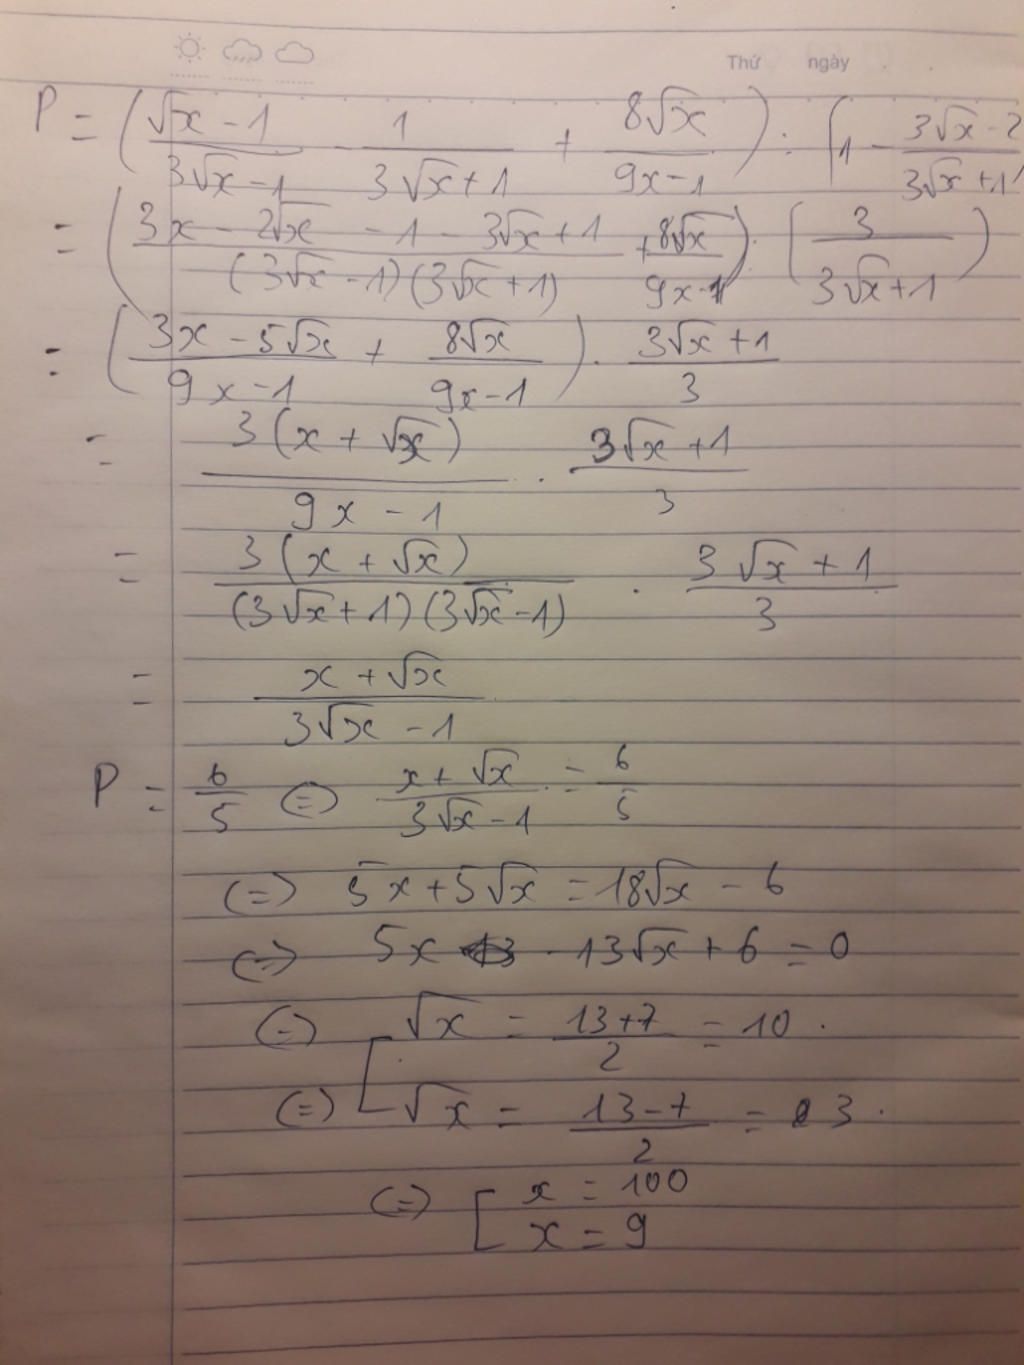 Thứ ngày
P = ( (√x - 1)/(3√x - 1) - 1/(3√x + 1) + 8√x/(9x - 1) ) : ( 1 - (3√x - 2)/(3√x + 1)
= ( (3x - 2√x - 1 - 3√x + 1)/((3√x - 1)(3√x + 1)) + 8√x/(9x - 1) ) : ( 3/(3√x + 1) )
= ( (3x - 5√x)/(9x - 1) + 8√x/(9x - 1) ) . (3√x + 1)/3
= 3(x + √x)/(9x - 1) . (3√x + 1)/3
= 3(x + √x)/((3√x + 1)(3√x - 1)) . (3√x + 1)/3
= (x + √x)/(3√x - 1)
P = 6/5 (=) (x + √x)/(3√x - 1) = 6/5
(=) 5x + 5√x = 18√x - 6
(=) 5x - 13√x + 6 = 0
(=) √x = (13 + 7)/2 = 10.
(=) [ √x = (13 - 7)/2 = 3.
(=) [ x = 100
x = 9